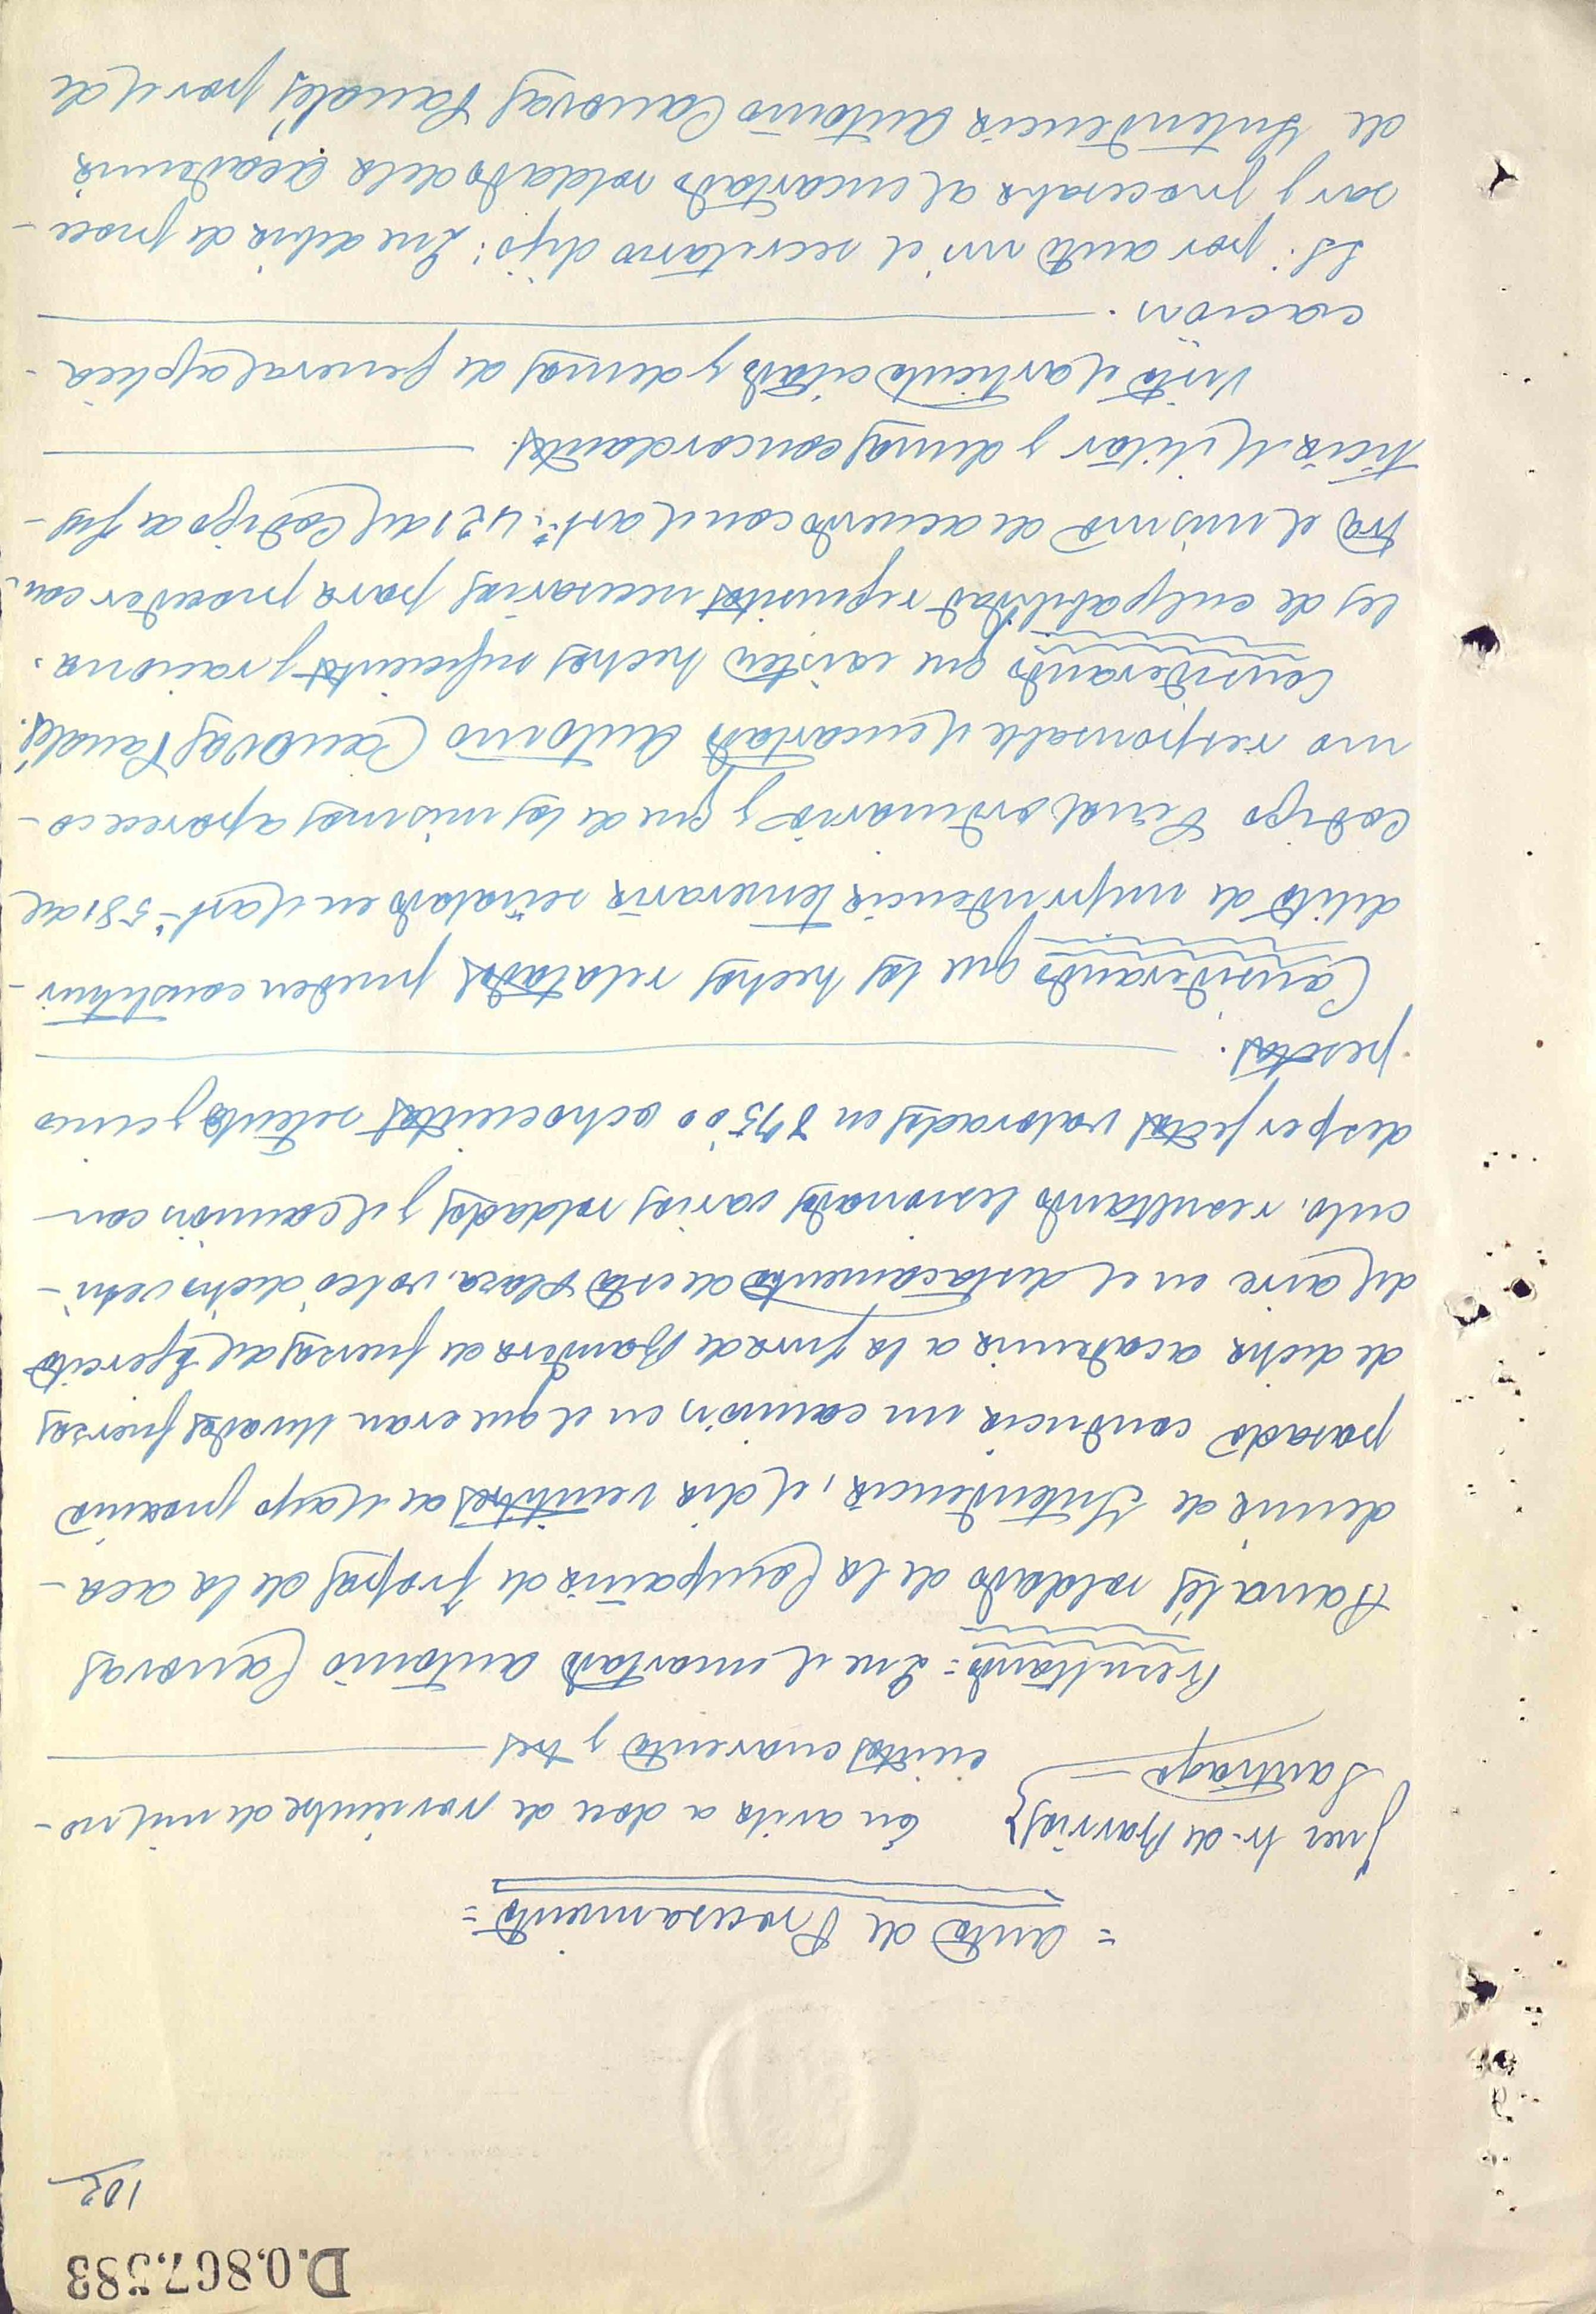 D.0.867.583
102
= Auto de Procesamiento =
Juez Sr. de Barrios } En Avila a doce de Noviembre de mil no-
Santiago = cientos cuarenta y tres
Resultando = Que el encartado Antonio Canovas
Panalés soldado de la Compañia de Tropas de la Aca-
demia de Intendencia, el dia veintitres de Mayo proximo
pasado conducia un camión en el que eran llevados fuerzas
de dicha academia a la Jura de Bandera de fuerzas del Ejercito
del aire en el destacamento de esta Plaza, volcó dicho vehi-
culo, resultando lesionados varios soldados y el camión con
desperfectos valorados en 875'00 ochocientos setenta y cinco
pesetas.
Considerando que los hechos relatados pueden constituir
delito de imprudencia temeraria señalado en el art- 581 del
Codigo Penal ordinario y que de los mismos aparece co-
mo responsable el encartado Antonio Canovas Panalés.
Considerando que existen hechos suficientes y raciona-
les de culpabilidad requisitos necesarios para proceder con-
tra el mismo de acuerdo con el artº: 421 del Codigo de Jus-
ticia Militar y demas concordantes.
Visto el articulo citado y demas de general aplica-
ción.
S.S. por ante mi el secretario dijo: Que debia de proce-
sar y procesaba al encartado soldado de la Academia
de Intendencia Antonio Canovas Panalés por el de